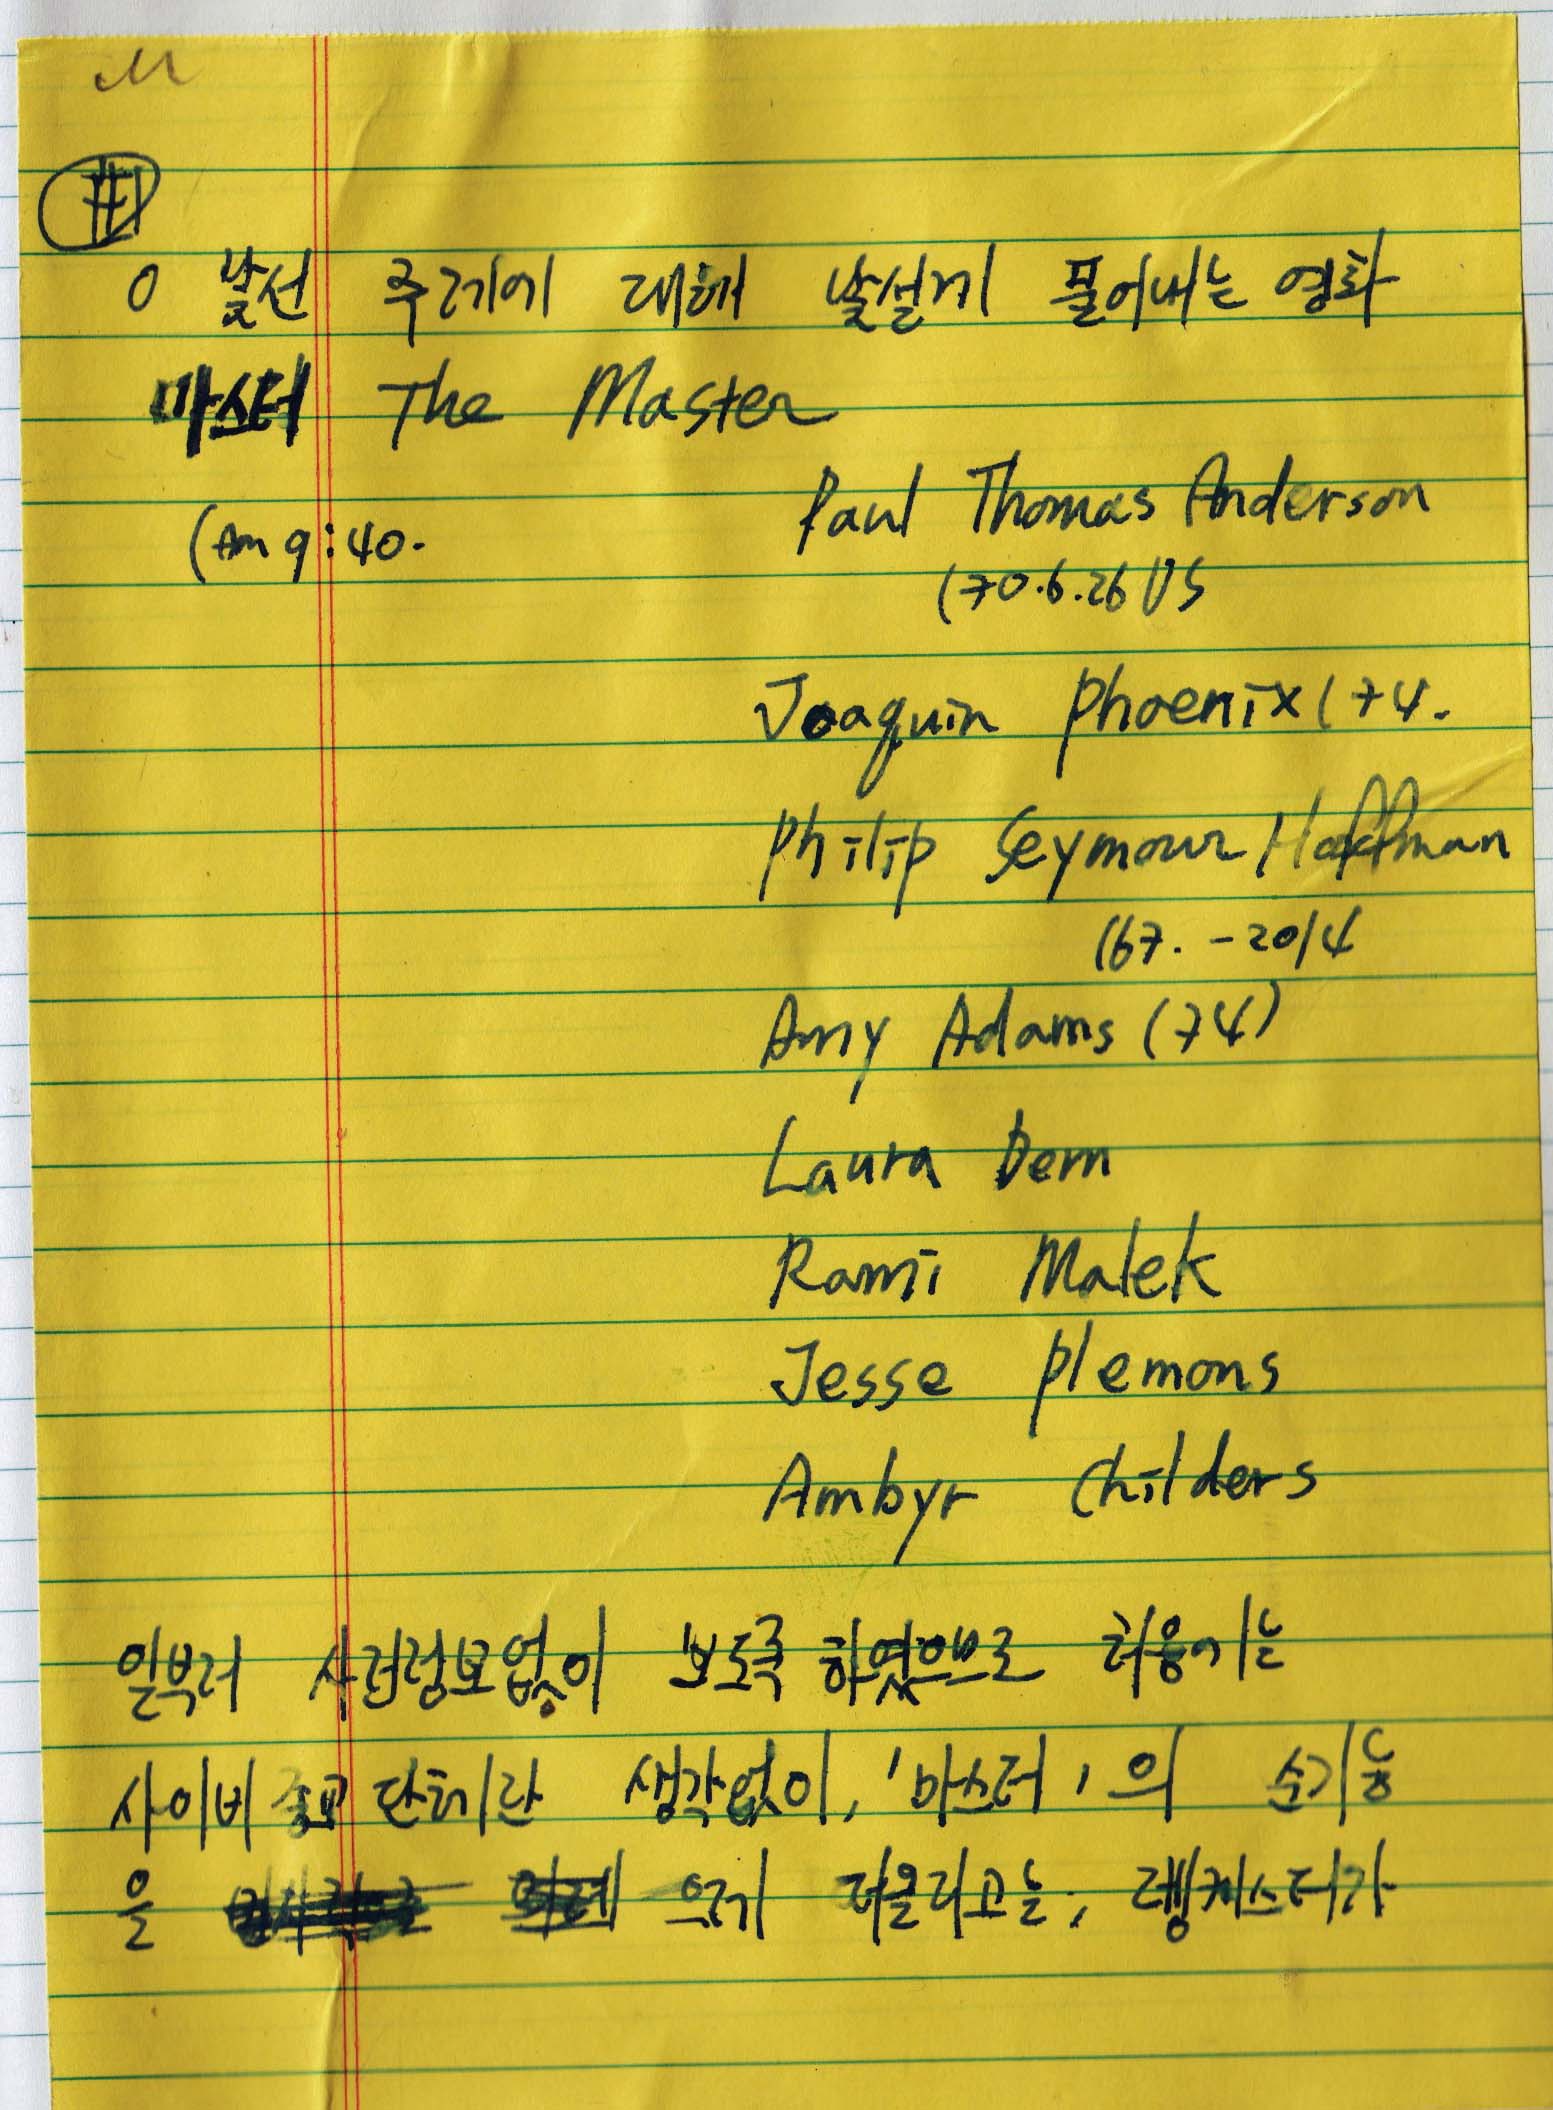 M
#1
o 낯선 주제에 대해 낯설게 풀어내는 영화
마스터 The Master
Paul Thomas Anderson
(Am 9:40.
(70.6.26 US
Joaquin Phoenix (74.
Philip Seymour Hoffman
(67. - 2014
Amy Adams (74)
Laura Dern
Rami Malek
Jesse Plemons
Ambyr Childers
일부러 사전정보없이 보도록 하였으므로 처음에는
사이비종교단체란 생각없이, '마스터'의 순기능
을 으레 떠올리고는, 랭케스터가